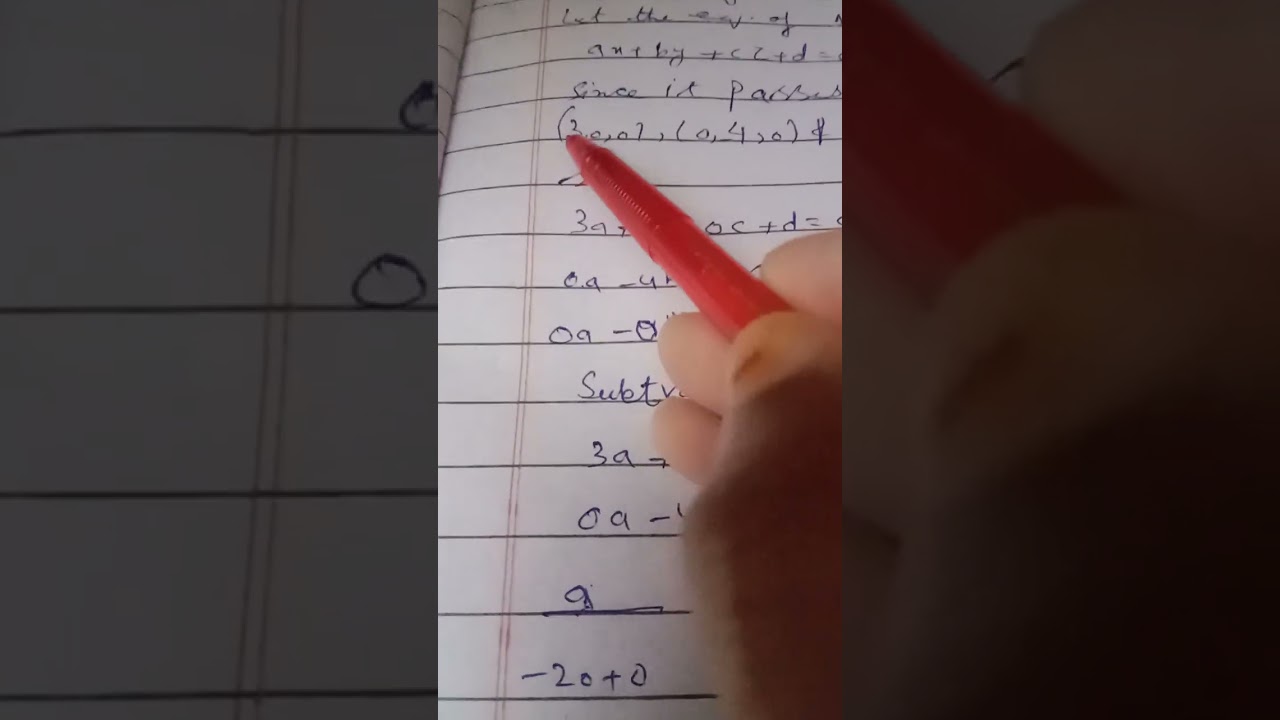 Let the eq. of
ax + by + cz + d =
Since it passes
(3,0,0), (0,4,0) &
3a + 0c + d =
0a - 4
0a - 0
Subtr
3a -
0a -
a
-20+0
0